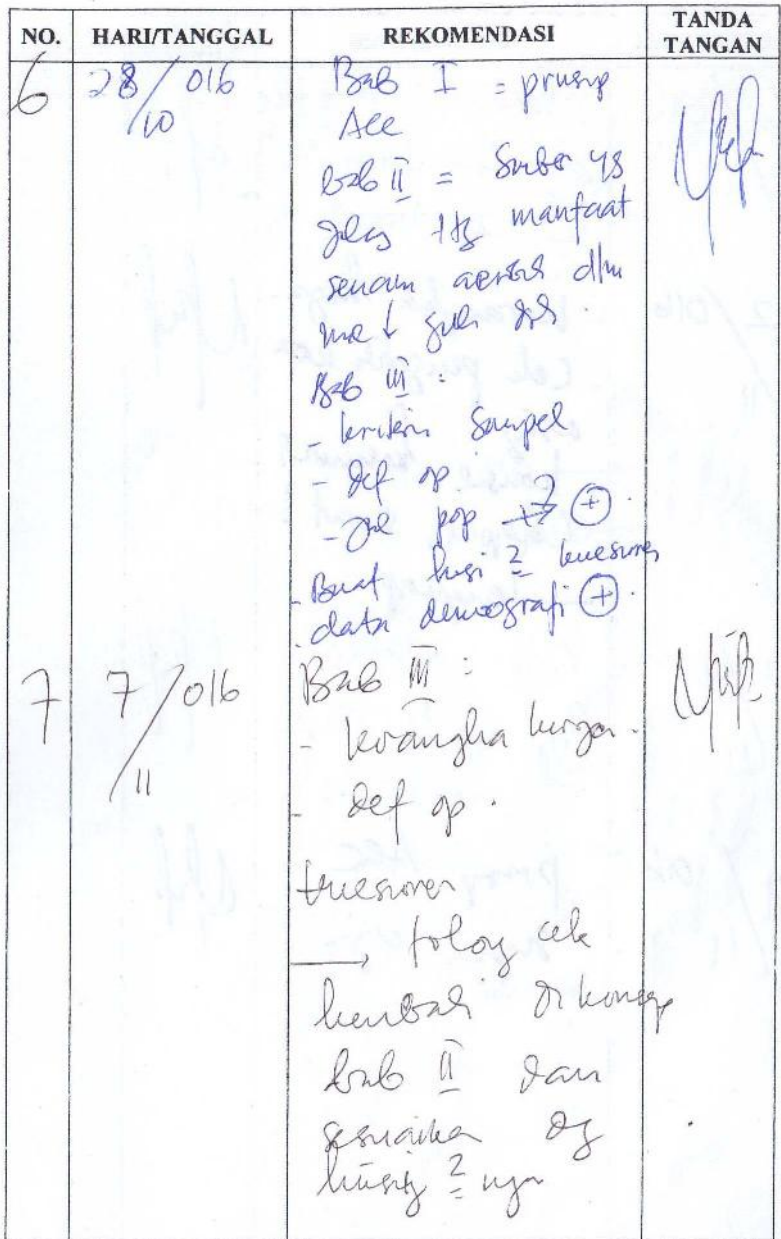 NO. HARI/TANGGAL REKOMENDASI TANDA TANGAN
6 28/10 016 Bab I = prinsip
Acc
bab II = Sumber yg
jelas ttg manfaat
senam aerobik dlm
me ↓ gula drh.
Bab III :
- kriteria Sampel
- def op.
- pop → ⊕.
- Buat kisi 2 kuesioner
. data demografi ⊕.
7 7/11 016 Bab III :
- kerangka kerja.
- def op.
kuesioner
→ tolong cek
kembali di konsep
bab II dan
sesuaikan dg
2 nya